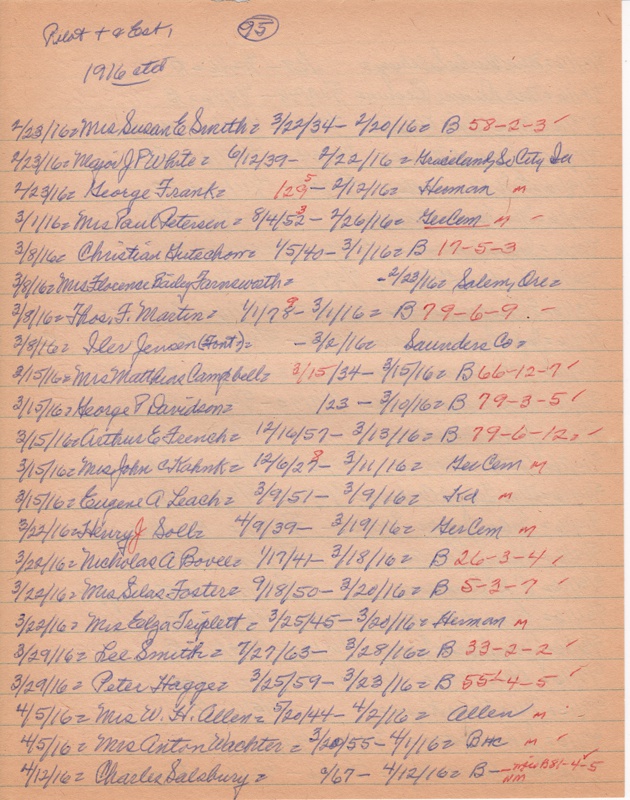 Pilot + & Est, 95
1916 etd
2/23/16 = Mrs Susan E Smith = 3/22/34 - 2/20/16 = B 58-2-3 ✓
2/23/16 = Major J P White = 6/12/39 - 2/22/16 = Graceland, So City Ia
2/23/16 = George Frank = /29 5 - 2/12/16 = Herman m
3/1/16 = Mrs Paul Petersen = 8/4/52 3 - 2/26/16 = Ger Cem m -
3/8/16 = Christian = 1/5/40 - 3/1/16 = B 17-5-3
3/8/16 = Mrs Florence Baily Farnsworth = - 2/23/16 = Salem, Ore =
3/8/16 = Thos. F. Martin = 1/1/78 9 - 3/1/16 = B 79-6-9. -
3/8/16 = Iler Jensen (Font) = - 3/2/16 = Saunders Co =
3/15/16 = Mrs Matthias Campbell = 3/15/34 - 3/15/16 = B 66-12-7 ✓
3/15/16 = George P Davidson = /23 - 3/10/16 = B 79-3-5 ✓
3/15/16 = Arthur E French = 12/16/57 - 3/13/16 = B 79-6-12 = ✓
3/15/16 = Mrs John C Kahnk = 12/6/27 8 - 3/11/16 = Ger Cem m
3/15/16 = Eugene A Leach = 3/9/51 - 3/9/16 = Kd m
3/22/16 = Henry J Soll = 4/9/39 - 3/19/16 = Ger Cem m
3/22/16 = Nicholas A Bovee = 1/17/41 - 3/18/16 = B 26-3-4 ✓
3/22/16 = Mrs Silas Foster = 9/18/50 - 3/20/16 = B 5-3-7 ✓
3/22/16 = Mrs Elza Triplett = 3/25/45 - 3/20/16 = Herman m
3/29/16 = Lee Smith = 7/27/63 - 3/28/16 = B 33-2-2 ✓
3/29/16 = Peter Hagge = 3/25/59 - 3/23/16 = B 55-4-5 ✓
4/5/16 = Mrs W. H. Allen = 5/20/44 - 4/2/16 = Allen m
4/5/16 = Mrs Anton Wachter = 3/20/55 - 4/1/16 = B m ✓
4/12/16 = Charles Salsbury = 9/67 - 4/12/16 = B - NM B81-4-5